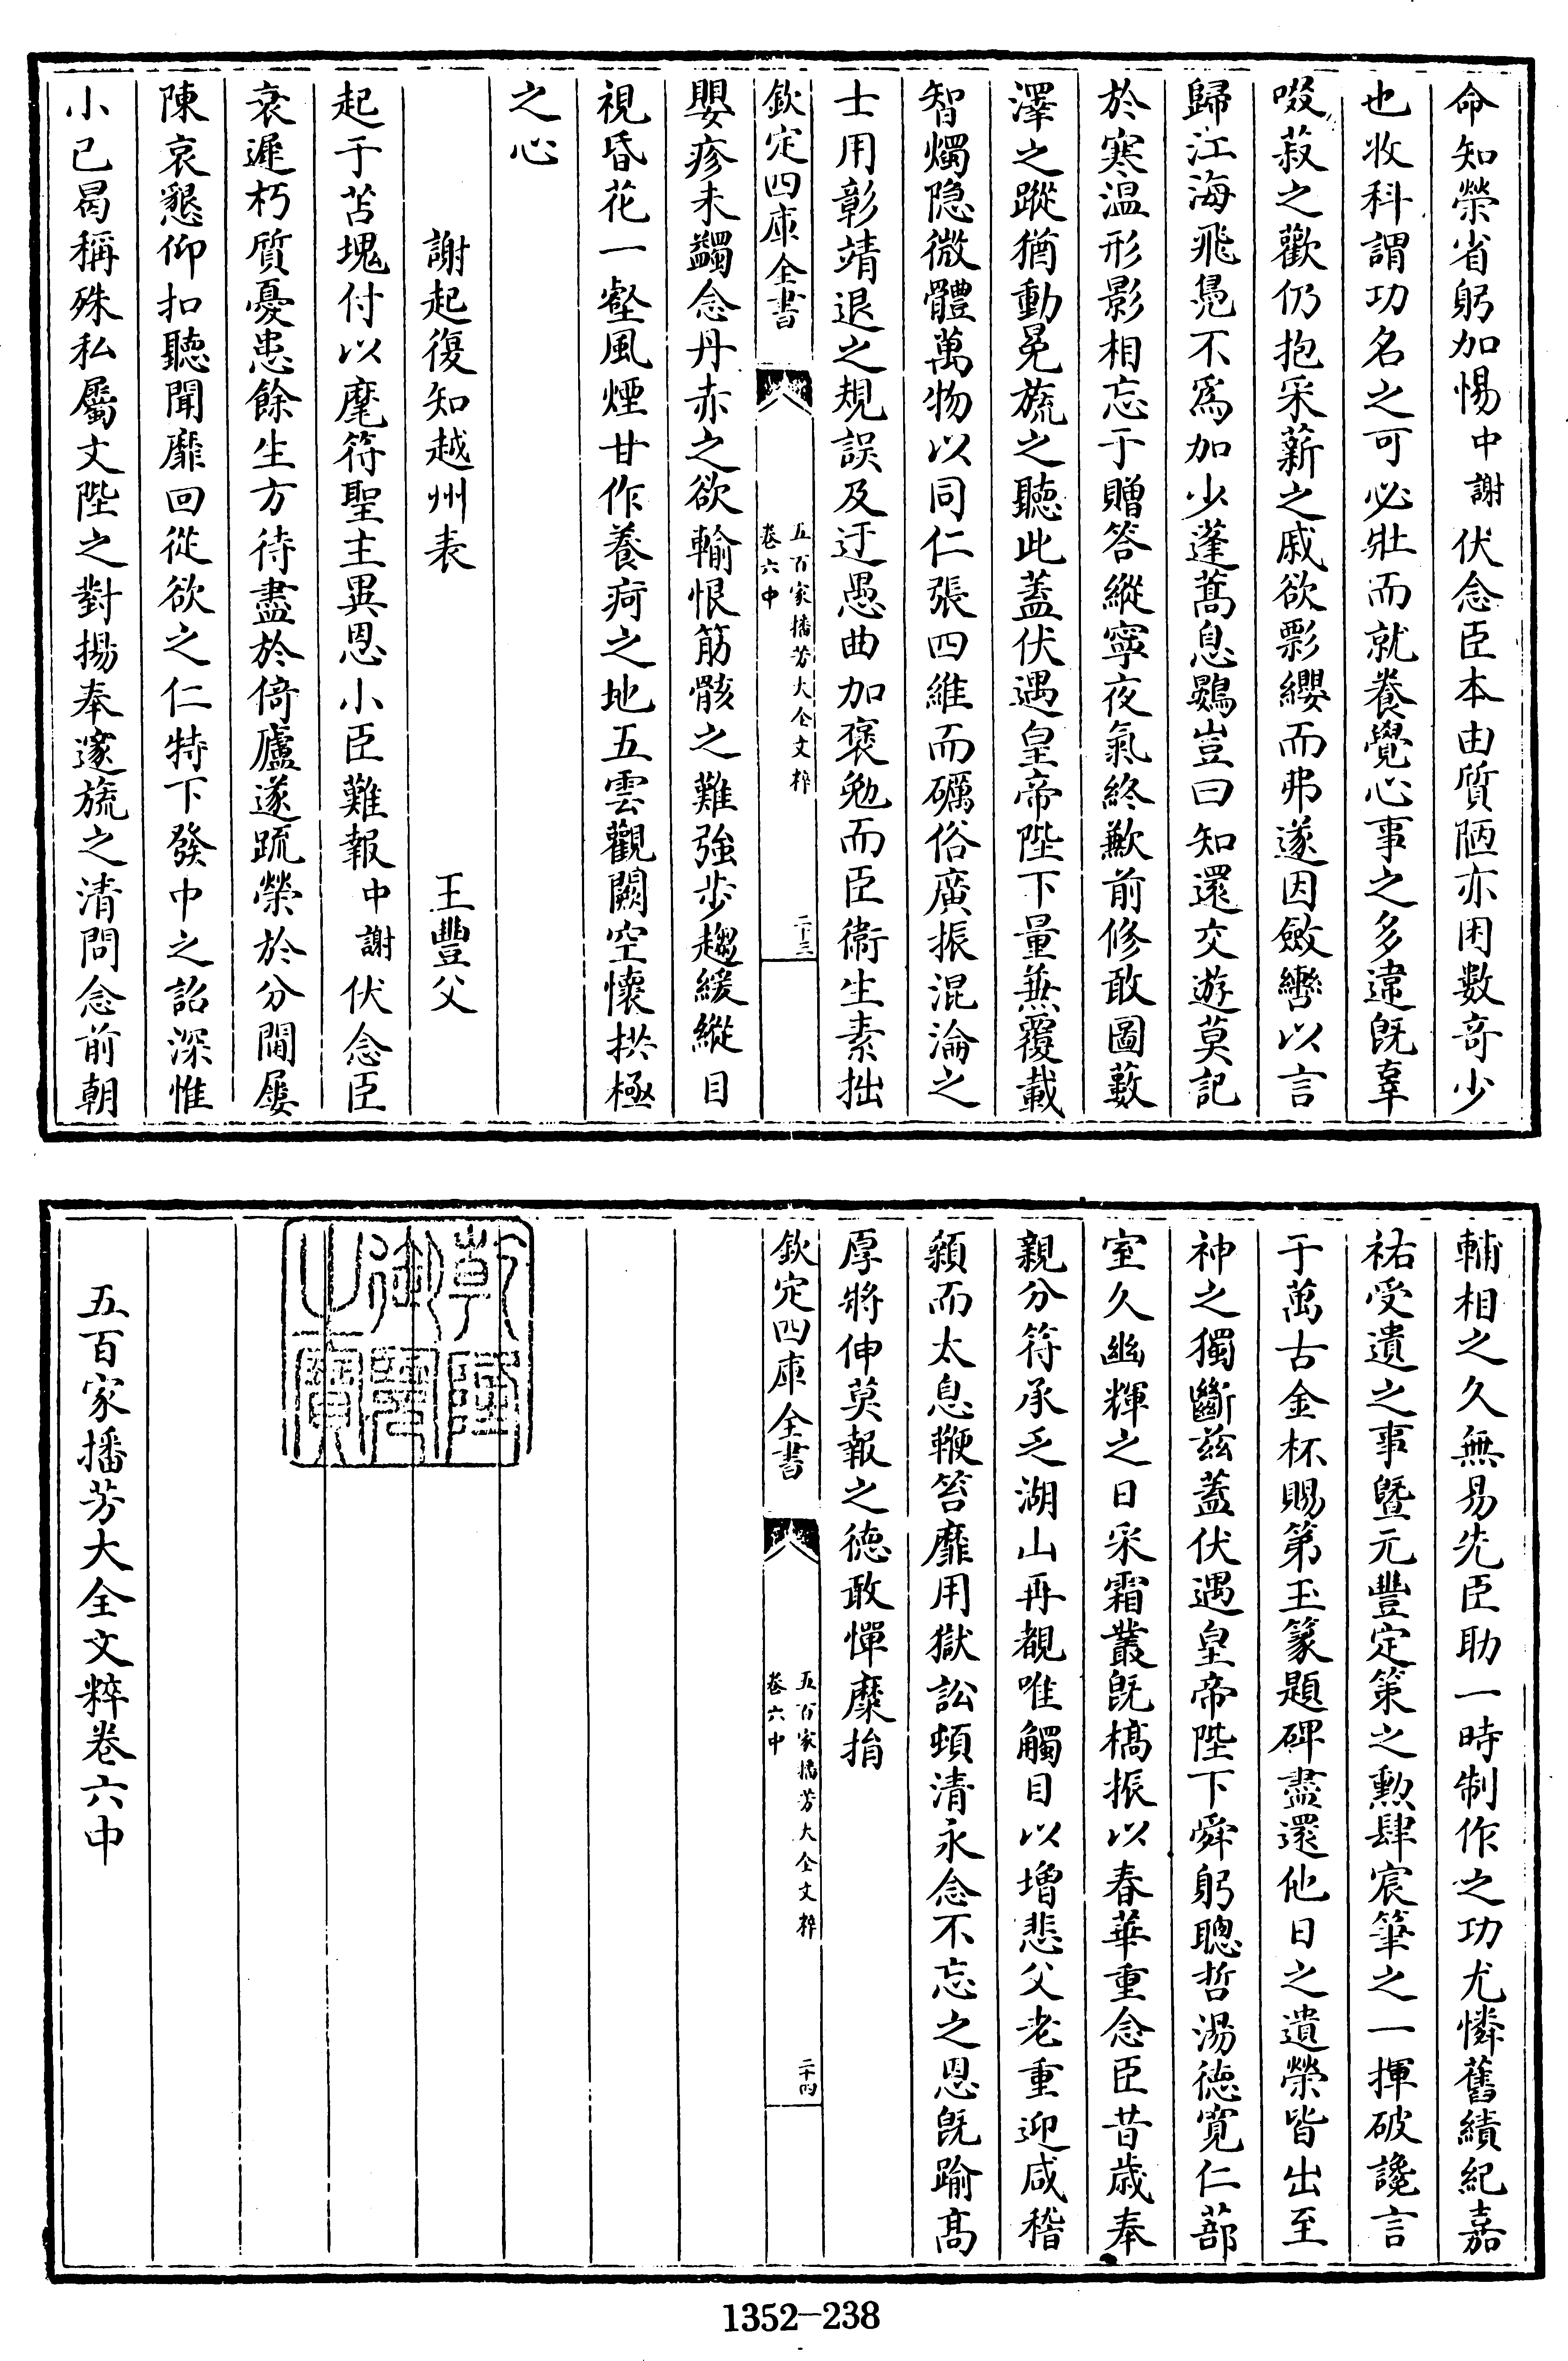 命知榮省躬加惕中謝伏念臣本由質陋亦困數奇少
也收科謂功名之可必壯而就養覺心事之多違既辜
啜菽之歡仍抱采薪之戚欲彯纓而弗遂因斂轡以言
歸江海飛鳧不爲加少蓬蒿息鷃豈曰知還交遊莫記
於寒温形影相忘于贈答縱寧夜氣終歉前修敢圖藪
澤之蹤猶動冕旒之聽此蓋伏遇皇帝陛下量兼覆載
智燭隐微體萬物以同仁張四維而礪俗廣振混淪之
士用彰靖退之規誤及迂愚曲加褒勉而臣衞生素拙
欽定四庫全書
五百家播芳大全文粹
卷六中
二十三
嬰疹未蠲念丹赤之欲輸恨筋骸之難強步趨緩縱目
視昏花一壑風煙甘作養疴之地五雲觀闕空懷拱極
之心
謝起復知越州表 王豐父
起于苫塊付以麾符聖主異恩小臣難報中謝伏念臣
衰遲朽質憂患餘生方待盡於倚廬遂疏榮於分閫屢
陳哀懇仰扣聽聞靡回從欲之仁特下發中之詔深惟
小己曷稱殊私屬文陛之對揚奉邃旒之清問念前朝
輔相之久無易先臣助一時制作之功尤憐舊績紀嘉
祐受遺之事暨元豐定策之勲肆宸筆之一揮破讒言
于萬古金杯賜第玉篆題碑盡還他日之遺榮皆出至
神之獨斷兹蓋伏遇皇帝陛下舜躬聰哲湯徳寛仁蔀
室久幽輝之日采霜叢既槁振以春華重念臣昔歳奉
親分符承乏湖山再覩唯觸目以增悲父老重迎咸稽
顙而太息鞭笞靡用獄訟頓清永念不忘之恩既踰髙
厚將伸莫報之徳敢憚糜捐
欽定四庫全書
五百家播芳大全文粹
卷六中
二十四
乾隆
御覽
之寶
五百家播芳大全文粹卷六中
1352-238